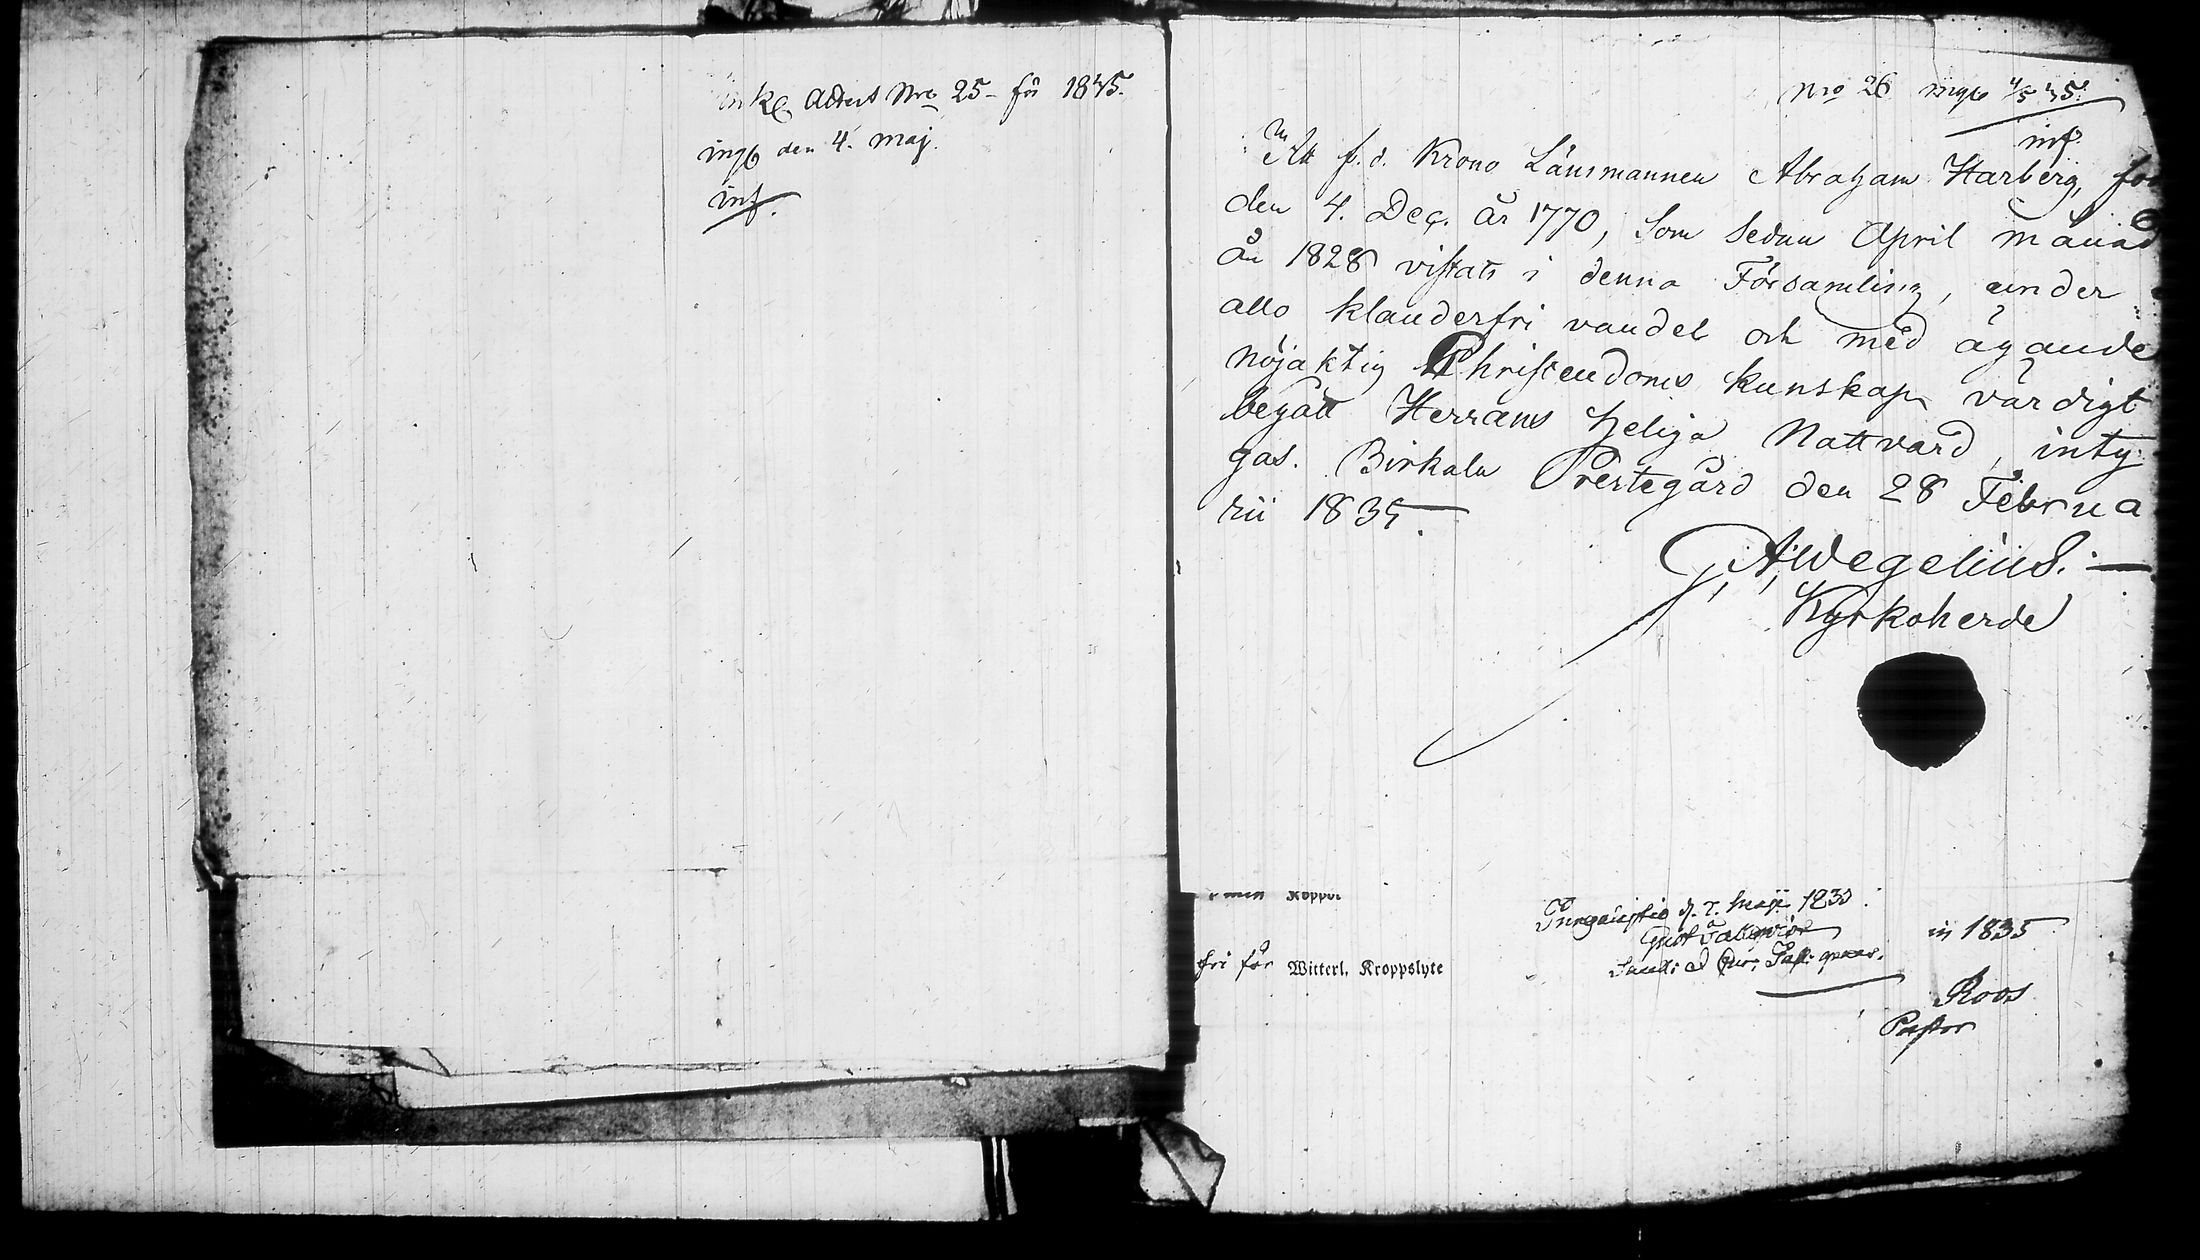 Attest Nro 25 för 1835.
ingb den 4. Maj.
inf.
Nro 26 ingb 4/5 35.
inf.
Att f. d. Krono Länsmannen Abraham Harberg, föd
den 4. Dec. år 1770, Som Sedan April månad
år 1828 vistats i denna Församling, under
allo klanderfri vandel och med ägande
nöjaktig Christendoms kunskap värdigt
begått Herrans heliga Nattvard, inty-
gas. Birkala Prestegård den 28 Februa
rii 1835.
G. A. Wegelius.
Kyrkoherde
Koppor
fri för Witterl. Kroppslyte
1835
Roos
Pastor